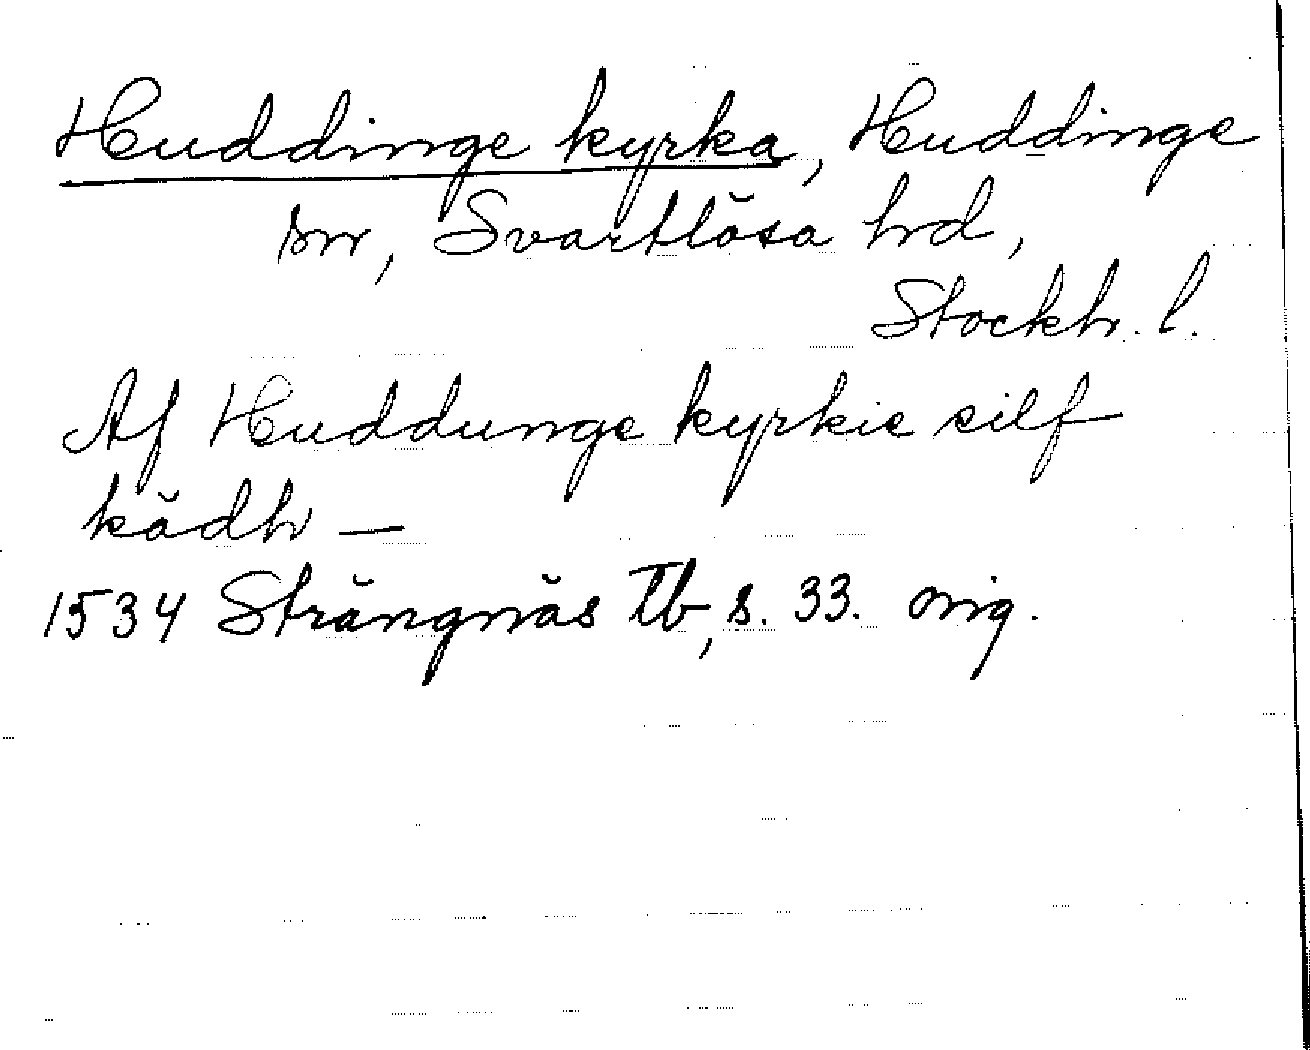 Huddinge kyrka, Huddinge
sn, Svartlösa hd,
Stockh. l.
Af Huddunge kyrkie silf
kädh —
1534 Strängnäs Tb, s. 33. orig.